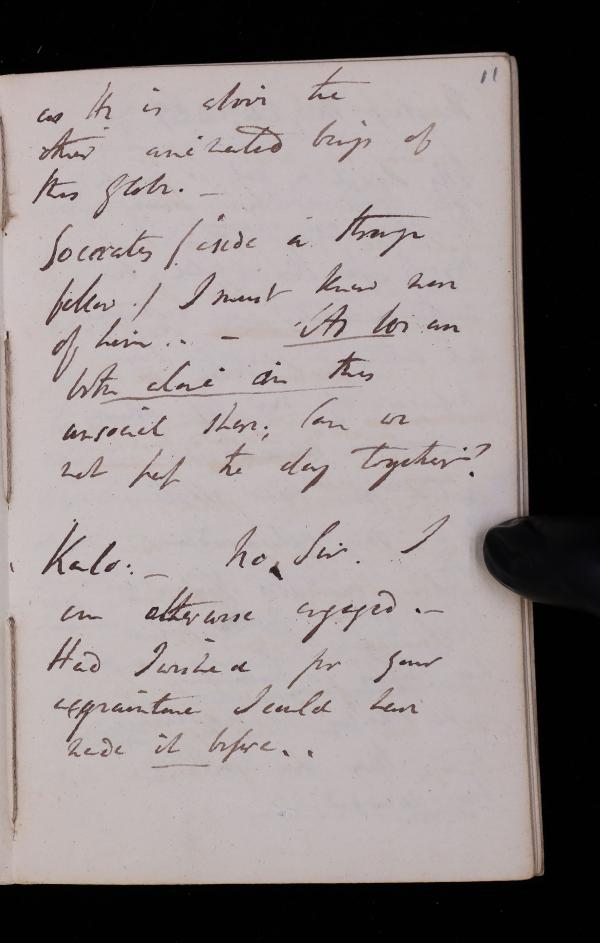 11
as He is above the
other animated beings of
this globe. _
Socrates / aside a strange
fellow. / I must know more
of him .. - "As we are
both alone on this
unsocial shore, Can we
not pass the day together"?
Kalo: _ No, Sir. I
am otherwise engaged. -
Had I wished for your
acquaintance I could have
made it before..